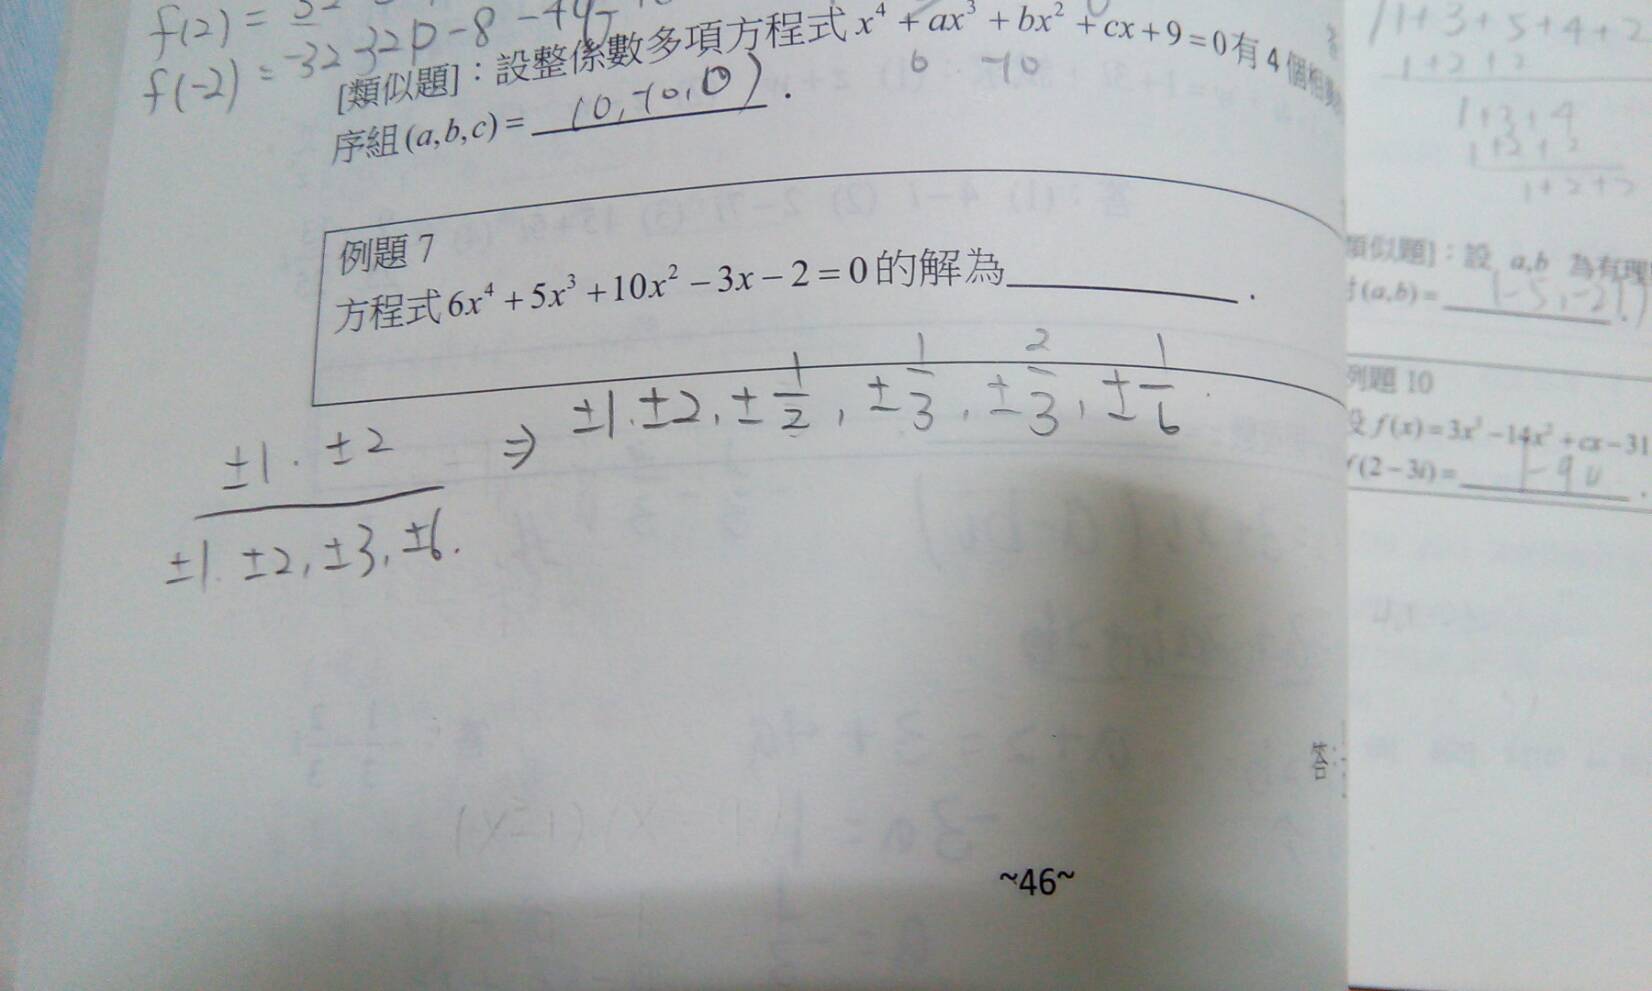 f(2) =
f(-2) = -32 32p - 8 - 4q
[類似題]：設整係數多項方程式 x⁴ + ax³ + bx² + cx + 9 = 0 有 4 個相
0 -10
序組 (a,b,c) = (0,-10,0).
例題 7
方程式 6x⁴ + 5x³ + 10x² - 3x - 2 = 0 的解為____________.
±1. ±2
±1. ±2, ±3, ±6.
⇒ ±1. ±2, ±1/2, ±1/3, ±2/3, ±1/6
答：
~46~
1+3+5+4+2
1+2+2
1+3+4
1+2+2
1+2+2
類似題]：設 a,b 為有理
(a,b) = (-5,-21).
例題 10
f(x) = 3x³ - 14x² + cx - 31
(2-3i) =